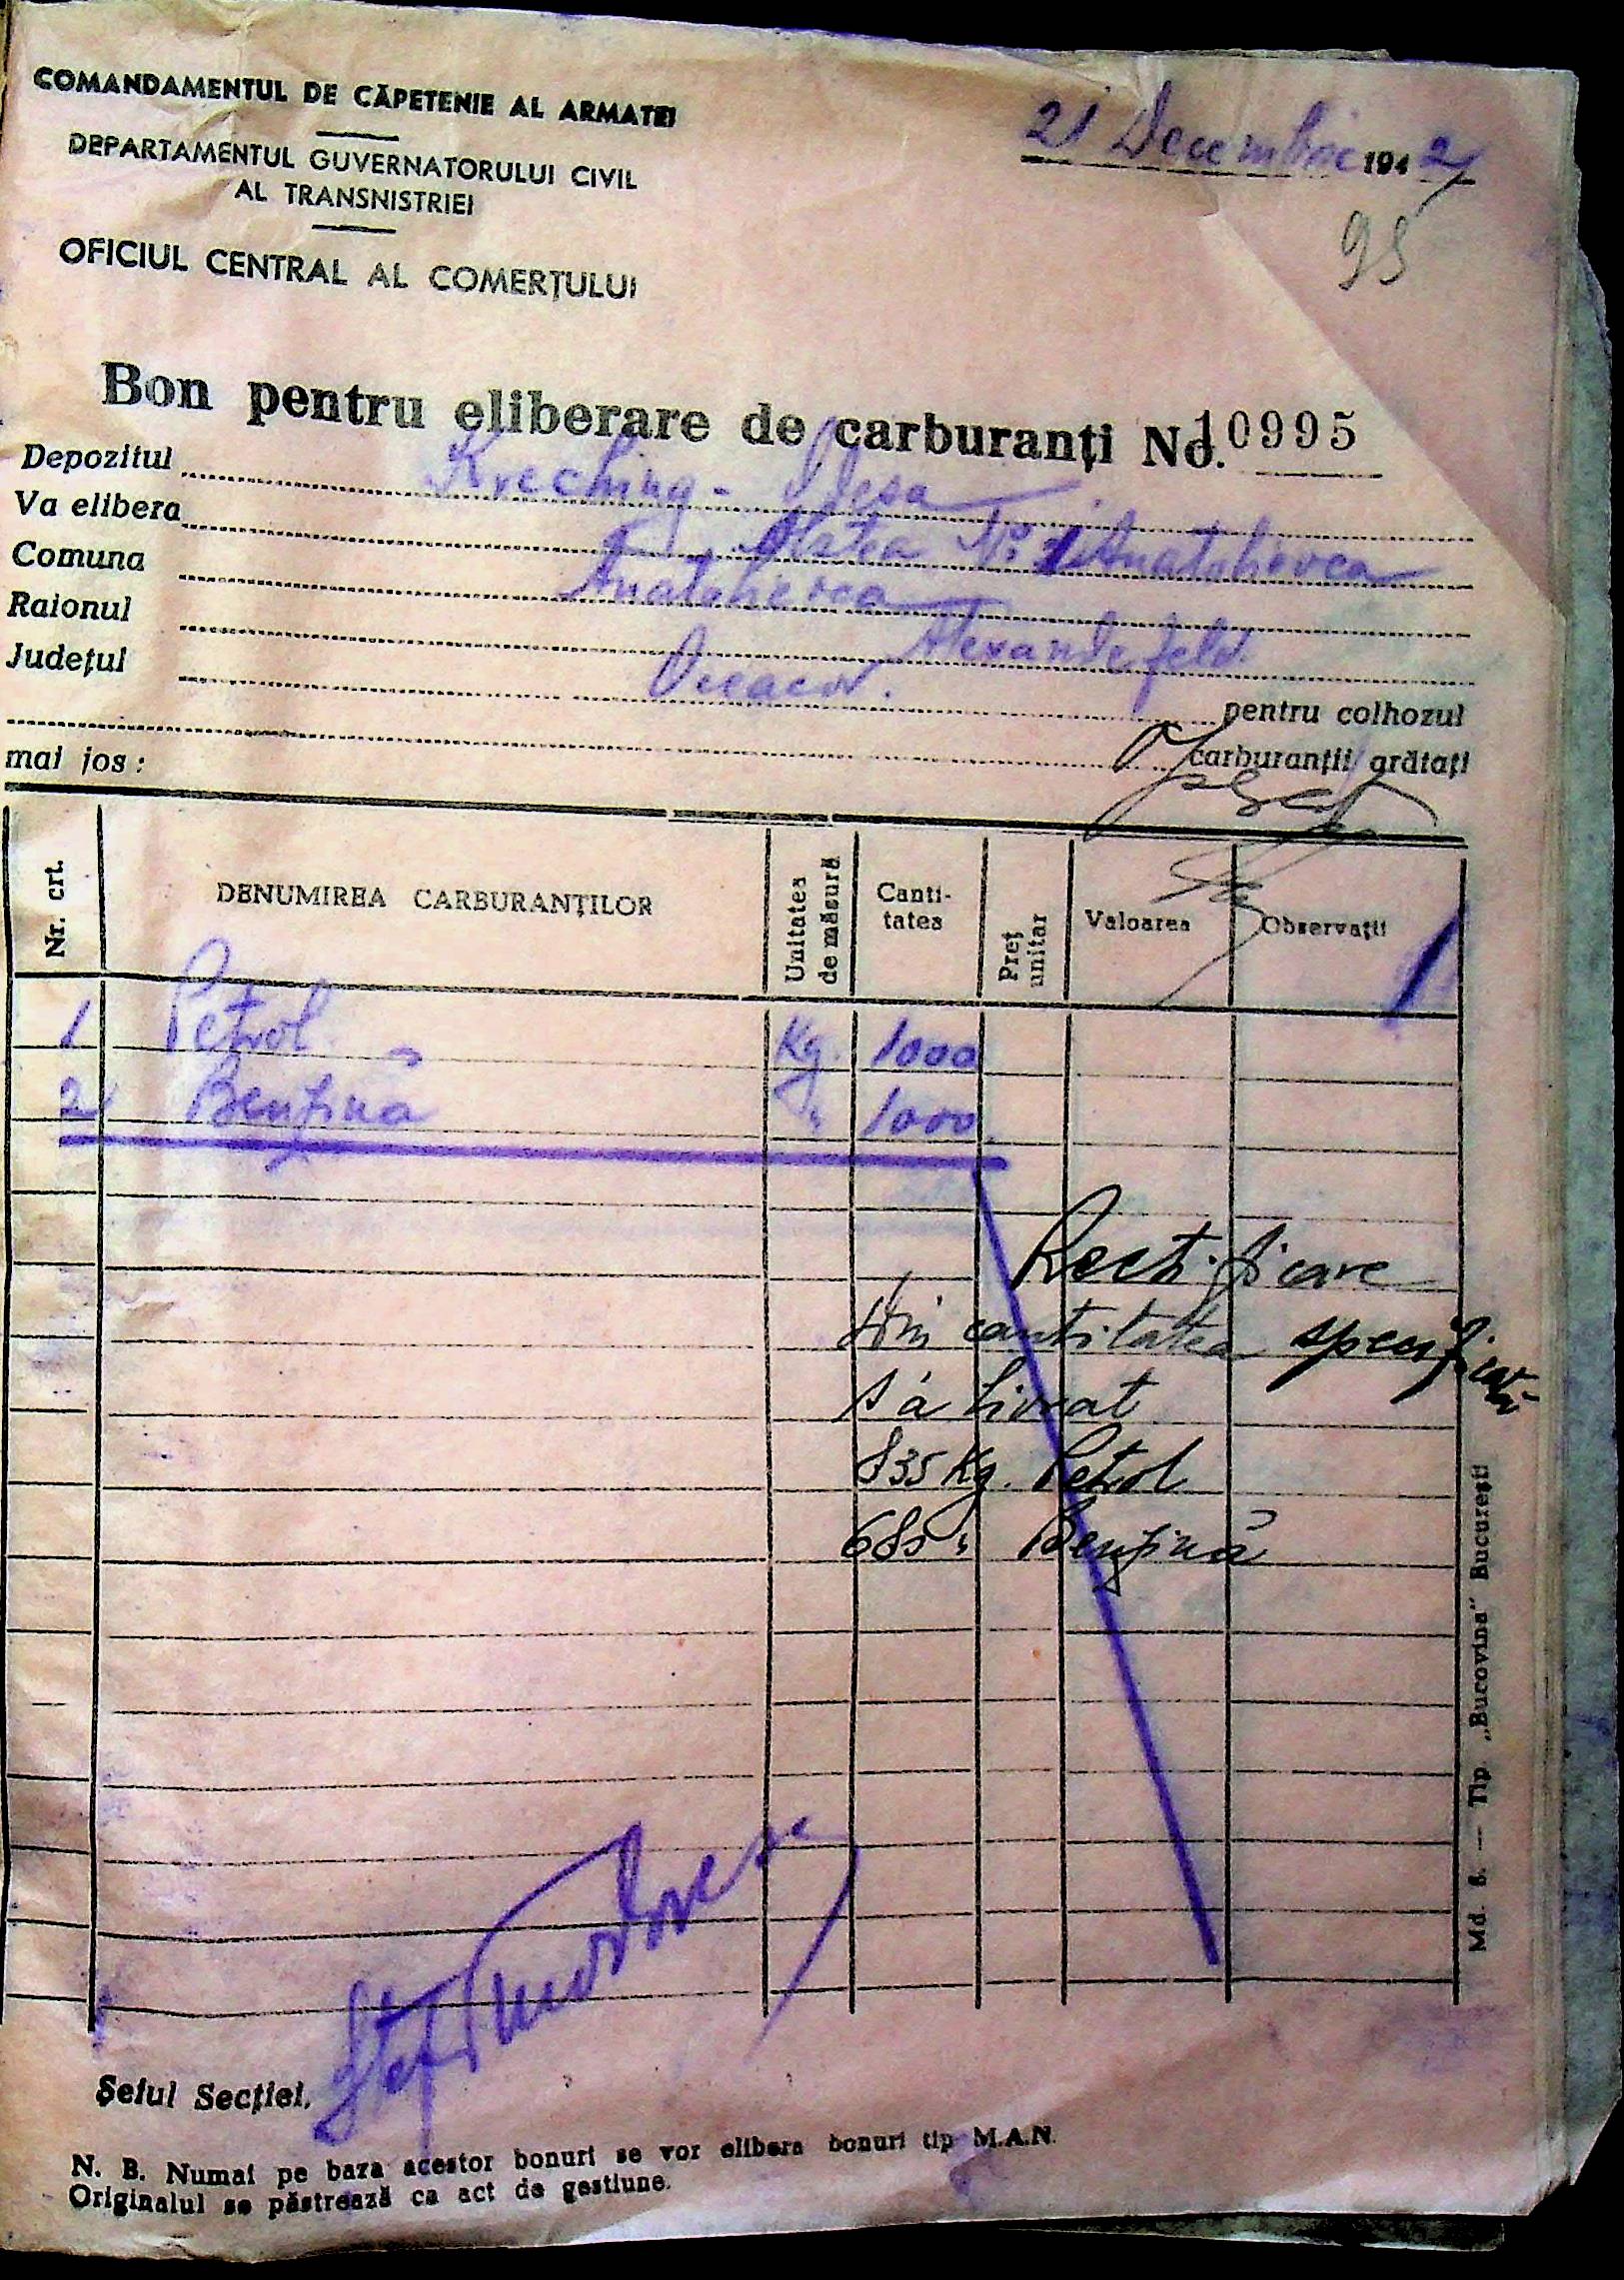 COMANDAMENTUL DE CĂPETENIE AL ARMATEI
21 Decembrie 1942
DEPARTAMENTUL GUVERNATORULUI CIVIL
AL TRANSNISTRIEI
95
OFICIUL CENTRAL AL COMERŢULUI
Bon pentru eliberare de carburanţi No. 10995
Depozitul Kreching - Odesa
Va elibera No. 1 Anatolievca
Comuna Anatolievca
Raionul Alexanderfeld
Judeţul Oceacov.
pentru colhozul
carburanţii arătaţi
mai jos :
Nr. crt. DENUMIREA CARBURANŢILOR Unitatea de măsură Canti-tatea Preţ unitar Valoarea Observaţii
1 Petrol Kg. 1000
2 Benzină " 1000
Rectificare
Din cantitatea specificată
s'a livrat
835 Kg. Petrol
685 " Benzină
Şeful Secţiei,
N. B. Numai pe baza acestor bonuri se vor elibera bonuri tip M.A.N.
Originalul se păstrează ca act de gestiune.
Md. 6. — Tip. „Bucovina" Bucureşti